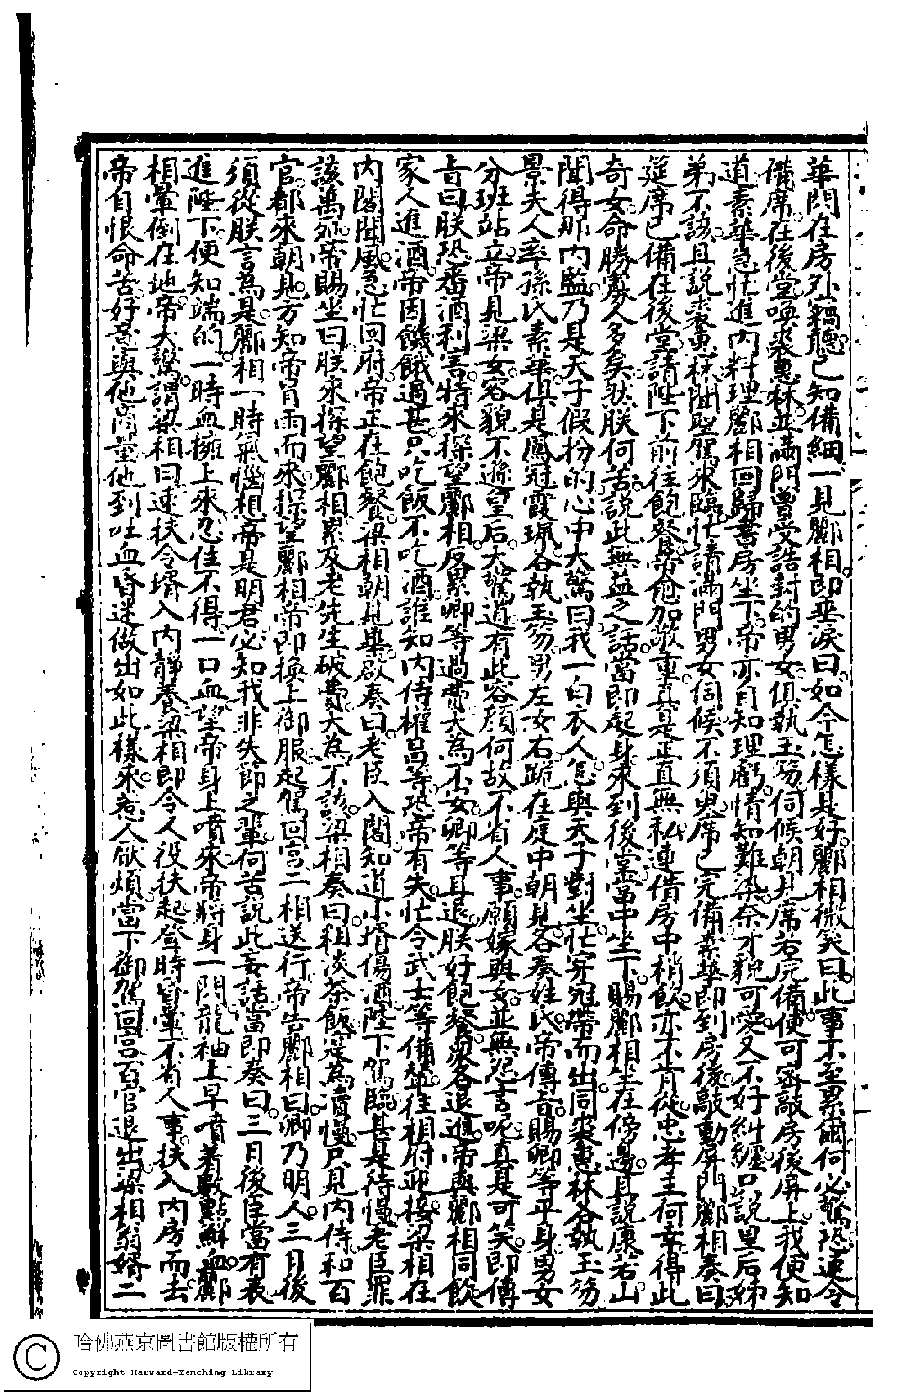 華門在房外竊聽已知備細一見酈相即垂淚曰如今怎樣是好酈相微笑曰此事不至累爾何必驚恐速令
備席在後堂喚裘惠林並滿門曾受誥封的男女俱執玉笏伺候朝見席若完備便可密敲房後屏上我便知
道素華急忙進內料理酈相回歸書房坐下帝亦自知理虧情知難染奈才貌可愛又不好糾纏口說里后姊
弟不該且說裘惠林聞聖駕來臨忙請滿門男女伺候不須臾席已完備素華即到房後敲動屏門酈相奏曰
筵席已備在後堂請陛下前往飽餐帝愈加敬重真是正直無私連備房中稍飲亦不肯從忠孝王何幸得此
奇女命勝寡人多矣然朕何苦說此無益之話當即起身來到後堂當中坐下賜酈相坐在傍邊且說康若山
聞得那內監乃是天子假扮的心中大驚曰我一白衣人怎與天子對坐忙穿冠帶而出同裘惠林各執玉笏
景夫人率孫氏素華俱是鳳冠霞珮各執玉笏男左女右跪在庭中朝見各奏姓氏帝傳旨賜卿等平身男女
分班站立帝見梁女容貌不遜皇后大驚道有此容顏何故不省人事願嫁與女並無怨言呢真是可笑即傳
旨曰朕恐番酒利害特來探望酈相反累卿等過費大為不安卿等且退朕好飽餐眾各退進帝與酈相同飲
家人進酒帝因饑餓過甚只吃飯不吃酒誰知內侍權昌等恐帝有失忙令武士等備輦往相府迎接梁相在
內閣聞風急忙回府帝正在飽餐梁相朝見畢啟奏曰老臣入閣知道小壻傷酒陛下駕臨甚是待慢老臣罪
該萬死帝賜坐曰朕來探望酈相累及老先生破費大為不該梁相奏曰粗淡茶飯定為瀆慢只見內侍和百
官都來朝見方知帝冒雨而來探望酈相帝即換上御服起駕回宮二相送行帝告酈相曰卿乃明人三日後
須從朕言為是酈相一時氣惱想帝是明君必知我非失節之輩何苦說此妄話當即奏曰三日後臣當有表
進陛下便知端的一時血擁上來忍住不得一口血望帝身上噴來帝將身一閃龍袖上早噴著數點鮮血酈
相暈倒在地帝大驚謂梁相曰速扶令壻入內靜養梁相即令人役扶起登時昏暈不省人事扶入內房而去
帝自恨命苦好意與他商量他到吐血昏迷做出如此樣來惹人厭煩當下御駕回宮百官退出梁相翁婿二
哈佛燕京圖書館版權所有
Copyright Harvard-Yenching Library